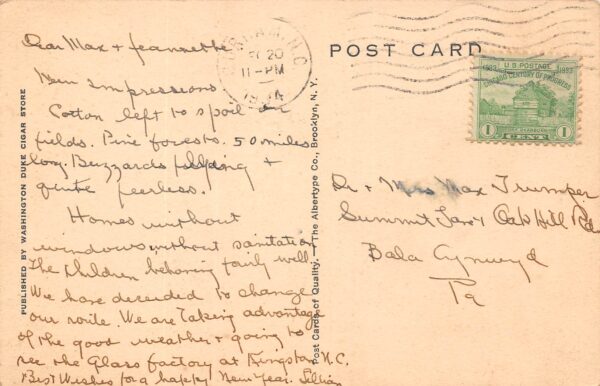 Dear Max + Jeannette
New impressions
Cotton left to spoil on
fields. Pine forests. 50 miles
long. Buzzards +
quite peerless.
Homes without
windows, without sanitation
The children behaving fairly well.
We have decided to change
our route. We are taking advantage
of the good weather + going to
see the Glass factory at Kingston N.C.
Best Wishes for a happy New Year. Lillian
PUBLISHED BY WASHINGTON DUKE CIGAR STORE
DURHAM, N.C.
20
11-PM
Post Cards of Quality. — The Albertype Co., Brooklyn, N. Y.
POST CARD
U.S. POSTAGE
1833 1933
CHICAGO CENTURY OF PROGRESS
FORT DEARBORN
1 CENT 1
Dr + Mrs Max Trumper
Summit Lane + Oak Hill Rd
Bala Cynwyd
Pa